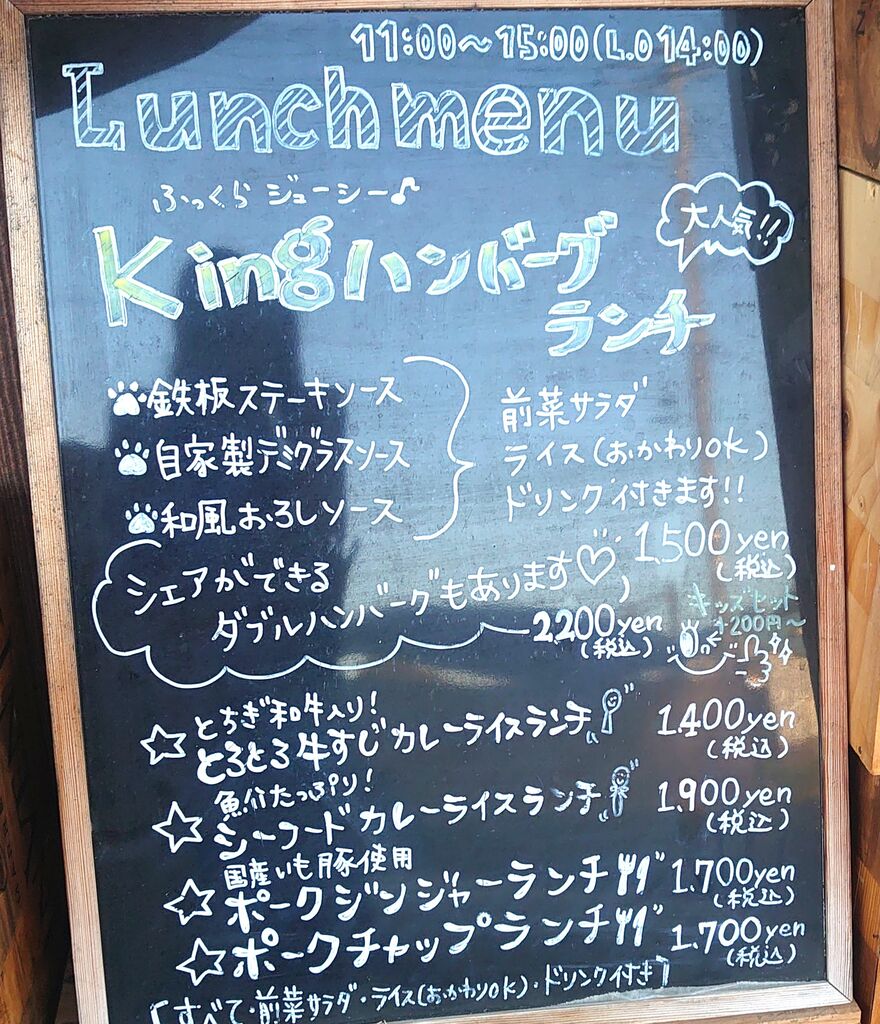 11:00～15:00(L.O 14:00)
Lunch menu
ふっくら ジューシー♪
Kingハンバーグ
ランチ
大人気!!
鉄板ステーキソース
自家製デミグラスソース
和風おろしソース
前菜サラダ
ライス(おかわりOK)
ドリンク付きます!!
1,500yen
(税込)
シェアができる
ダブルハンバーグもあります♡
2,200yen
(税込)
キッズセット
+200円～
とちぎ和牛入り!
☆とろとろ牛すじカレーライスランチ 1,400yen
(税込)
魚介たっぷり!
☆シーフードカレーライスランチ 1,900yen
(税込)
国産いも豚使用
☆ポークジンジャーランチ 1,700yen
(税込)
☆ポークチャップランチ 1,700yen
(税込)
[すべて・前菜サラダ・ライス(おかわりOK)・ドリンク付き]